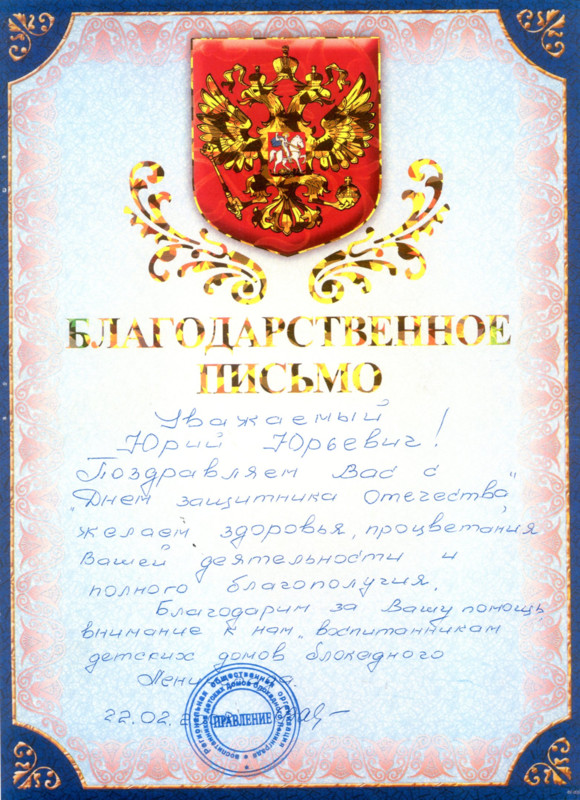 БЛАГОДАРСТВЕННОЕ
ПИСЬМО
Уважаемый
Юрий Юрьевич!
Поздравляем Вас с
"Днем защитника Отечества",
желаем здоровья, процветания
Вашей деятельности и
полного благополучия.
Благодарим за Вашу помощь,
внимание к нам, воспитанникам
детских домов блокадного
22.02.
Региональная общественная организация
воспитанников детских домов блокадного Ленинграда
ПРАВЛЕНИЕ